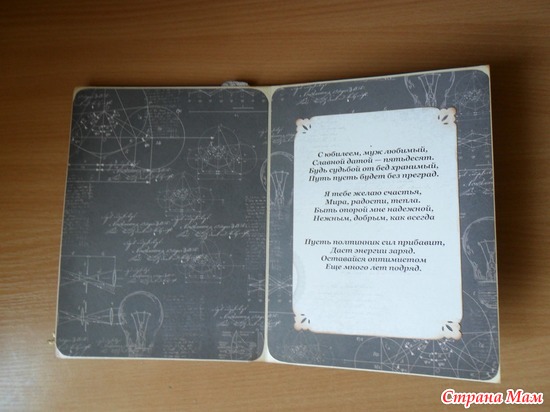 С юбилеем, муж любимый,
Славной датой — пятьдесят.
Будь судьбой от бед хранимый,
Путь пусть будет без преград.
Я тебе желаю счастья,
Мира, радости, тепла.
Быть опорой мне надежной,
Нежным, добрым, как всегда
Пусть полтинник сил прибавит,
Даст энергии заряд.
Оставайся оптимистом
Еще много лет подряд.
Страна Мам